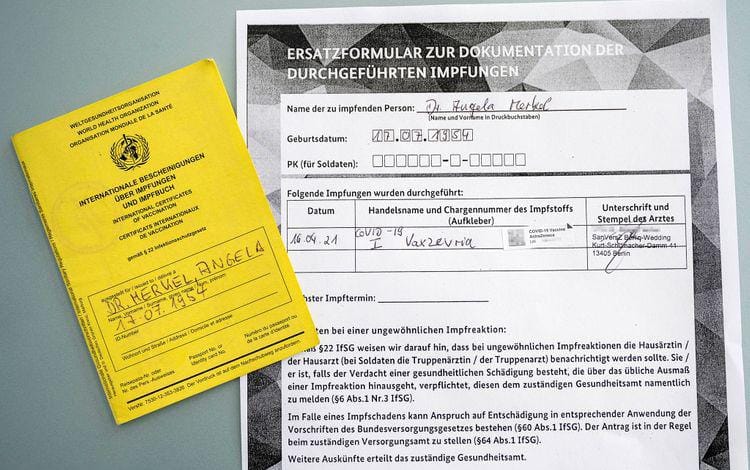 WELTGESUNDHEITSORGANISATION
WORLD HEALTH ORGANIZATION
ORGANISATION MONDIALE DE LA SANTÉ
INTERNATIONALE BESCHEINIGUNGEN
ÜBER IMPFUNGEN
UND IMPFBUCH
INTERNATIONAL CERTIFICATES
OF VACCINATION
CERTIFICATS INTERNATIONAUX
DE VACCINATION
gemäß § 22 Infektionsschutzgesetz
ausgestellt für / issued to / délivré à
DR. MERKEL, ANGELA
Name, Vorname / Surname, given name / Nom, prénom
17.07.1954
ID-Number
Wohnort und Straße / Address / Domicile et adresse
Reisepaß-Nr. oder
Nr. des Pers.-Ausweises
Passport No. or
Identity card No.
Numéro du passeport ou
de la carte d'identité
VersNr. 7530-12-353-3826 Der Vordruck ist auf dem Nachschubweg anzufordern.
ERSATZFORMULAR ZUR DOKUMENTATION DER
DURCHGEFÜHRTEN IMPFUNGEN
Name der zu impfenden Person: Dr. Angela Merkel
(Name und Vorname in Druckbuchstaben)
Geburtsdatum: 17.07.1954
PK (für Soldaten):
Folgende Impfungen wurden durchgeführt:
Datum
Handelsname und Chargennummer des Impfstoffs
(Aufkleber)
Unterschrift und
Stempel des Arztes
16.04.21
COVID-19
I Vaxzevria
COVID-19 Vaccine
AstraZeneca
Lot
SanVersZ Berlin-Wedding
Kurt-Schumacher-Damm 41
13405 Berlin
hster Impftermin:
ten bei einer ungewöhnlichen Impfreaktion:
ß §22 IfSG weisen wir darauf hin, dass bei ungewöhnlichen Impfreaktionen die Hausärztin /
der Hausarzt (bei Soldaten die Truppenärztin / der Truppenarzt) benachrichtigt werden sollte. Sie /
er ist, falls der Verdacht einer gesundheitlichen Schädigung besteht, die über das übliche Ausmaß
einer Impfreaktion hinausgeht, verpflichtet, diesen dem zuständigen Gesundheitsamt namentlich
zu melden (§6 Abs.1 Nr.3 IfSG).
Im Falle eines Impfschadens kann Anspruch auf Entschädigung in entsprechender Anwendung der
Vorschriften des Bundesversorgungsgesetzes bestehen (§60 Abs.1 IfSG). Der Antrag ist in der Regel
beim zuständigen Versorgungsamt zu stellen (§64 Abs.1 IfSG).
Weitere Auskünfte erteilt das zuständige Gesundheitsamt.